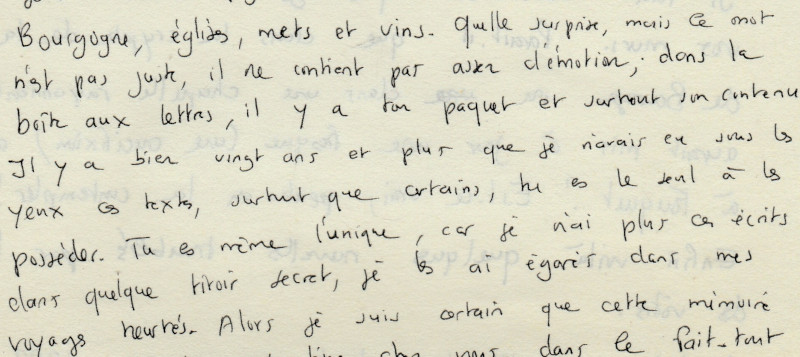 Bourgogne, églises, mets et vins. Quelle surprise, mais ce mot
n'est pas juste, il ne contient pas assez d'émotion ; dans la
boîte aux lettres, il y a ton paquet et surtout son contenu
Il y a bien vingt ans et plus que je n'avais eu sous les
yeux ces textes, surtout que certains, tu es le seul à les
posséder. Tu es même l'unique, car je n'ai plus ces écrits
dans quelque tiroir secret, je les ai égarés dans mes
voyages heurtés. Alors je suis certain que cette mémoire
chez vous dans le fait-tout